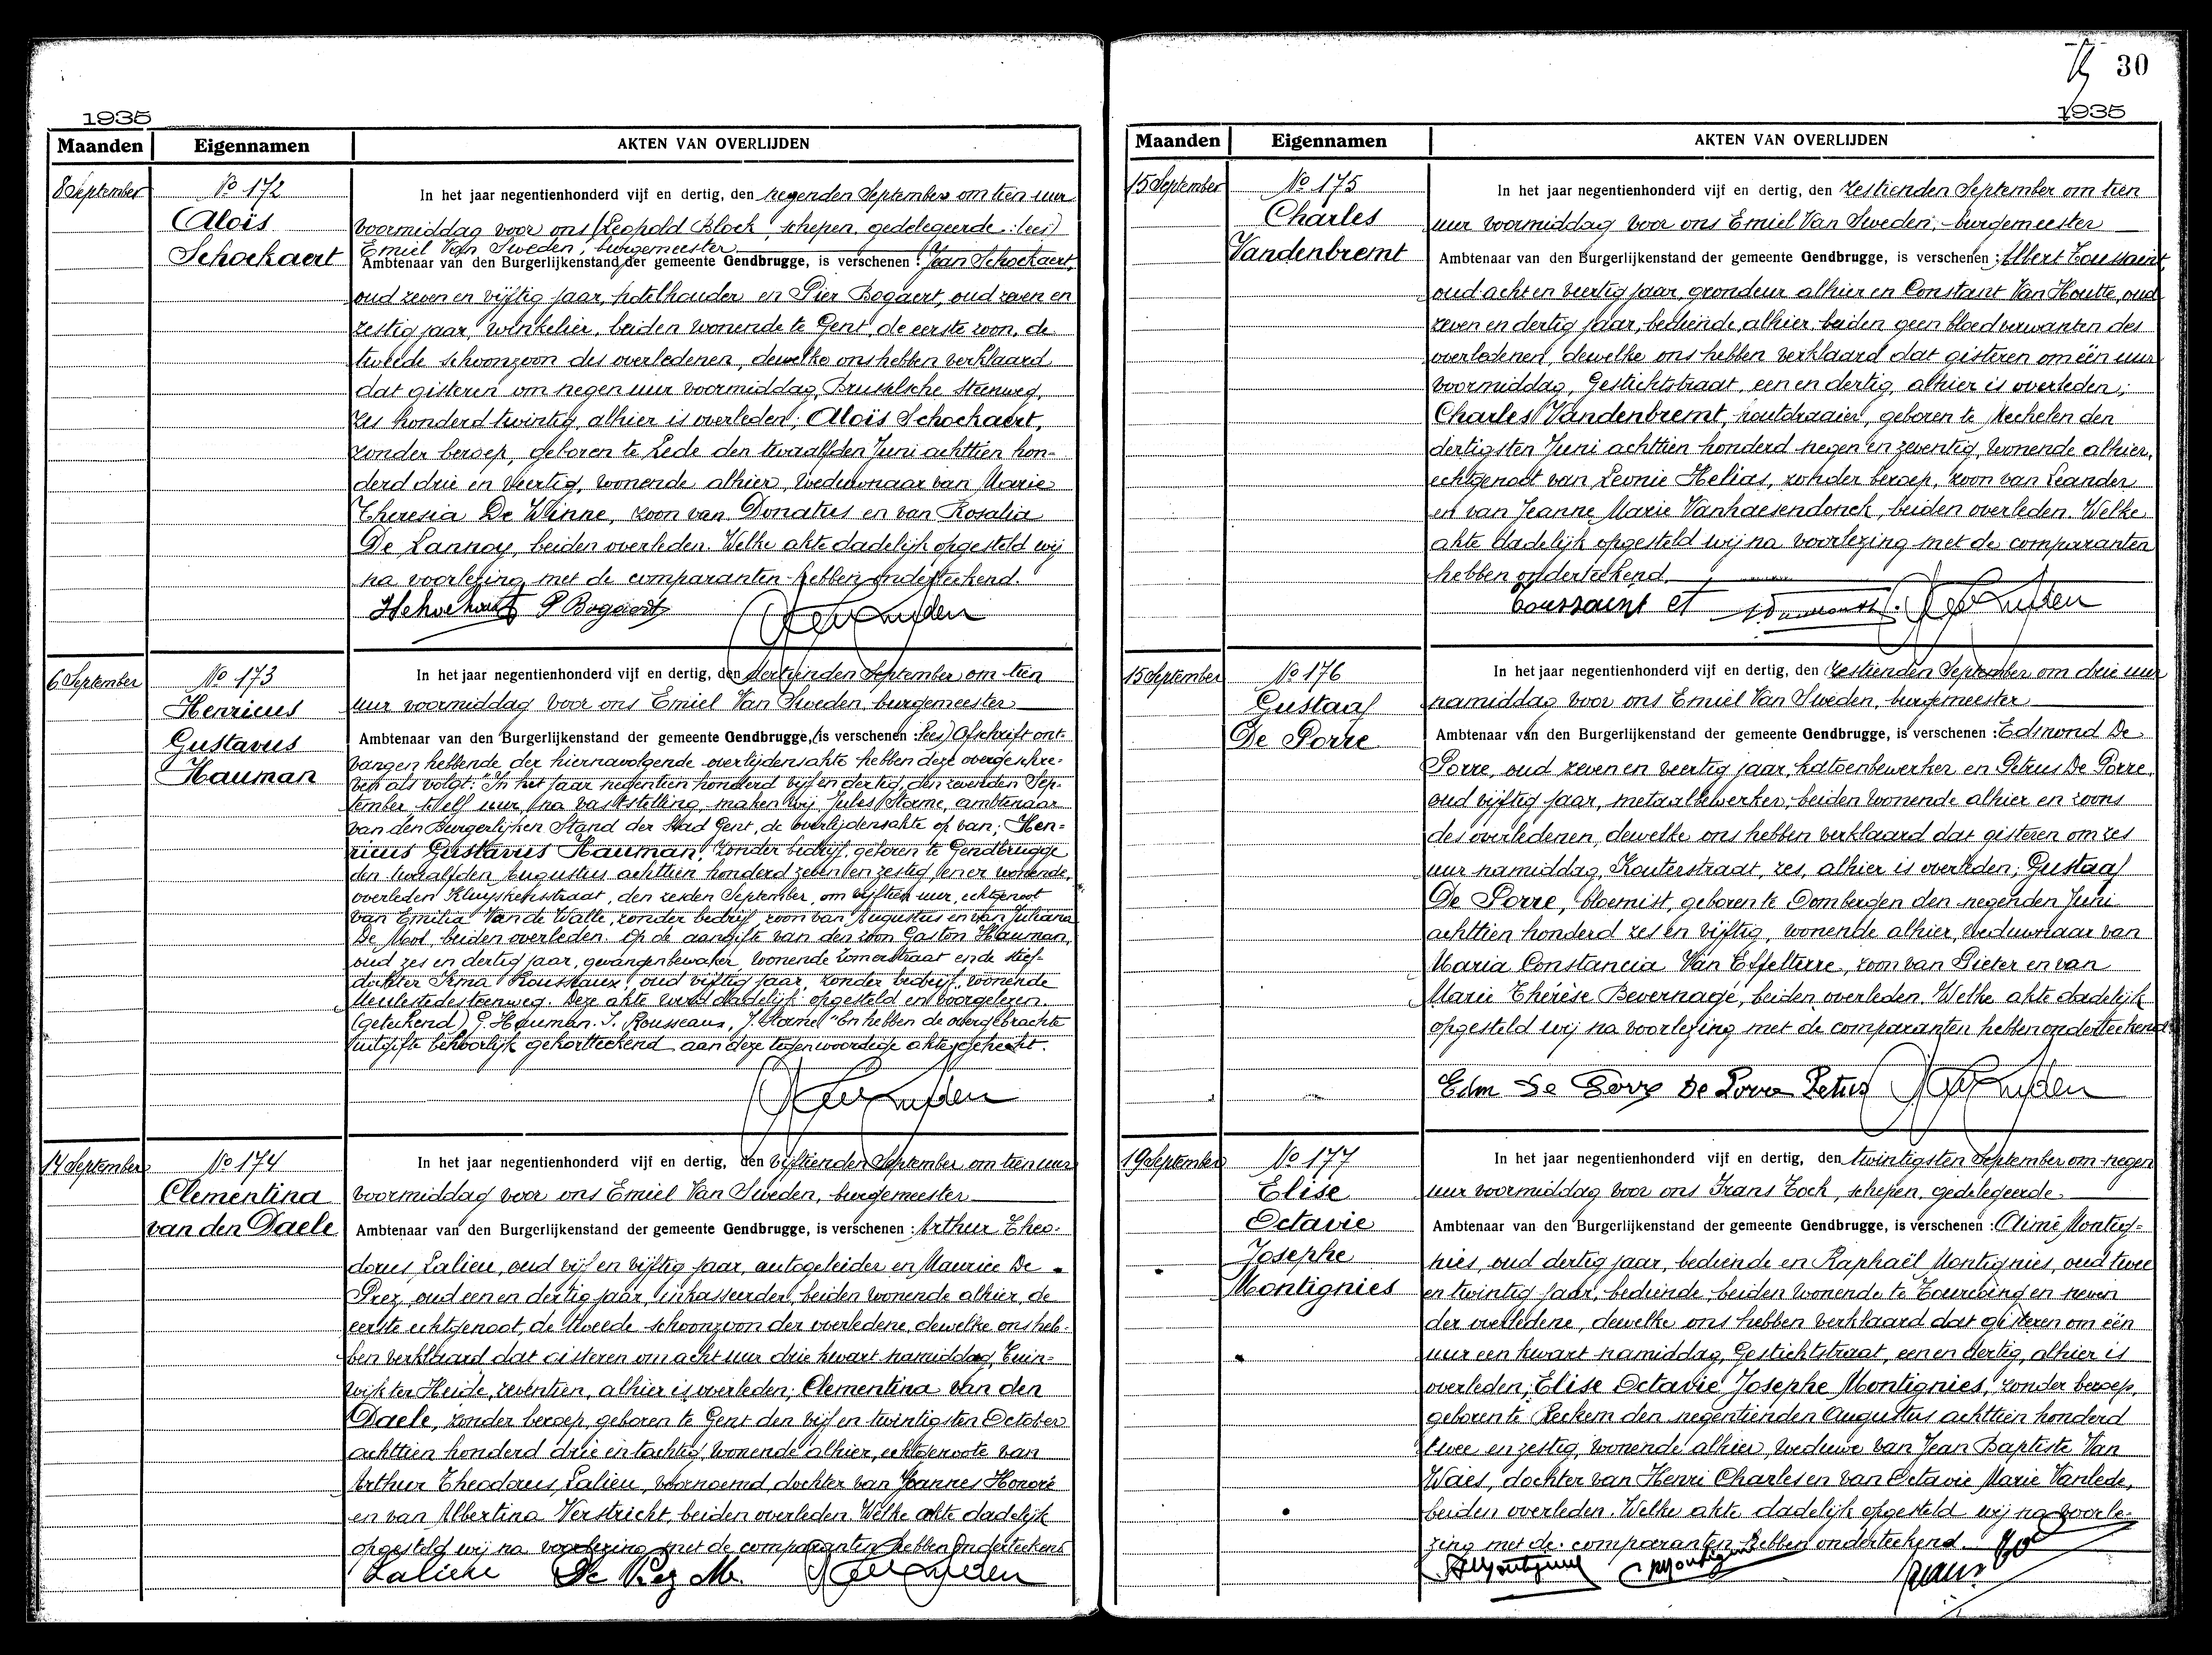 1935
Maanden Eigennamen AKTEN VAN OVERLIJDEN
8 September
No 172
Aloïs
Schockaert
In het jaar negentienhonderd vijf en dertig, den negenden September om tien uur
voormiddag voor ons (Leopold Block, schepen, gedelegeerde: lees)
Emiel Van Sweden, burgemeester
Ambtenaar van den Burgerlijkenstand der gemeente Gendbrugge, is verschenen: Jean Schockaert,
oud zeven en vijftig jaar, hotelhouder en Pier Bogaert, oud zeven en
zestig jaar, winkelier, beiden wonende te Gent, de eerste zoon, de
tweede schoonzoon des overledenen, dewelke ons hebben verklaard
dat gisteren om negen uur voormiddag, Brusselsche steenweg,
zes honderd twintig, alhier is overleden; Aloïs Schockaert,
zonder beroep, geboren te Lede den twaalfden Juni achttien hon-
derd drie en veertig, wonende alhier, weduwnaar van Marie
Theresia De Winne, zoon van Donatus en van Rosalia
De Lannoy, beiden overleden. Welke akte dadelijk opgesteld wij
na voorlezing met de comparanten hebben onderteekend.
P Bogaert
6 September
No 173
Henricus
Gustavus
Hauman
In het jaar negentienhonderd vijf en dertig, den dertienden September om tien
uur voormiddag voor ons Emiel Van Sweden, burgemeester
Ambtenaar van den Burgerlijkenstand der gemeente Gendbrugge, (is verschenen: lees) Afschrift ont-
vangen hebbende der hiernavolgende overlijdensakte hebben deze overgeschre-
ven als volgt: "In het jaar negentien honderd vijf en dertig, den zevenden Sep-
tember, te elf uur, na vaststelling, maken wij, Jules Storme, ambtenaar
van den Burgerlijken Stand der Stad Gent, de overlijdensakte op van; Hen-
ricus Gustavus Hauman, zonder bedrijf, geboren te Gendbrugge
den twaalfden Augustus achttien honderd zeven en zestig, er wonende,
overleden Kluyskensstraat, den zesden September, om vijftien uur, echtgenoot
van Emilia Van de Walle, zonder bedrijf, zoon van Augustus en van Juliana
De Mol, beiden overleden. Op de aangifte van den zoon Gaston Hauman,
oud zes en dertig jaar, gevangenbewaker, wonende Zomerstraat en de stief-
dochter Irma Rousseaux, oud vijftig jaar, zonder bedrijf, wonende
Meulestedesteenweg. Deze akte werd dadelijk opgesteld en voorgelezen.
(geteekend) G. Hauman. I. Rousseaux, J. Storme" En hebben de overgebrachte
uitgifte behoorlijk gekortteekend aan deze tegenwoordige akte gehecht.
14 September
No 174
Clementina
van den Daele
In het jaar negentienhonderd vijf en dertig, den vijftienden September om tien uur
voormiddag voor ons Emiel Van Sweden, burgemeester
Ambtenaar van den Burgerlijkenstand der gemeente Gendbrugge, is verschenen: Arthur Theo-
dorus Lalieu, oud vijf en vijftig jaar, autogeleider en Maurice De
Prez, oud een en dertig jaar, inkasseerder, beiden wonende alhier, de
eerste echtgenoot, de tweede schoonzoon der overledene, dewelke ons heb-
ben verklaard dat gisteren om acht uur drie kwart namiddag, Tuin-
wijk ter Heide, zeventien, alhier is overleden; Clementina van den
Daele, zonder beroep, geboren te Gent den vijf en twintigsten October
achttien honderd drie en tachtig, wonende alhier, echtgenoote van
Arthur Theodorus Lalieu, voornoemd, dochter van Joannes Honoré
en van Albertina Verstricht, beiden overleden. Welke akte dadelijk
opgesteld wij na voorlezing met de comparanten hebben onderteekend
De Prez M.
30
1935
Maanden Eigennamen AKTEN VAN OVERLIJDEN
15 September
No 175
Charles
Vandenbremt
In het jaar negentienhonderd vijf en dertig, den zestienden September om tien
uur voormiddag voor ons Emiel Van Sweden, burgemeester
Ambtenaar van den Burgerlijkenstand der gemeente Gendbrugge, is verschenen: Albert Toussaint,
oud acht en veertig jaar, grondeur alhier en Constant Van Houtte, oud
zeven en dertig jaar, bediende alhier, beiden geen bloedverwanten des
overledenen, dewelke ons hebben verklaard dat gisteren om één uur
voormiddag, Gestichtstraat, een en dertig, alhier is overleden;
Charles Vandenbremt, houtdraaier, geboren te Mechelen den
dertigsten Juni achttien honderd negen en zeventig, wonende alhier,
echtgenoot van Leonie Helias, zonder beroep, zoon van Leander
en van Jeanne Marie Vanhaesendonck, beiden overleden. Welke
akte dadelijk opgesteld wij na voorlezing met de comparanten
hebben onderteekend.
Toussaint
15 September
No 176
Gustaaf
De Porre
In het jaar negentienhonderd vijf en dertig, den zestienden September om drie uur
namiddag voor ons Emiel Van Sweden, burgemeester
Ambtenaar van den Burgerlijkenstand der gemeente Gendbrugge, is verschenen: Edmond De
Porre, oud zeven en veertig jaar, katoenbewerker en Petrus De Porre,
oud vijftig jaar, metaalbewerker, beiden wonende alhier en zoons
des overledenen, dewelke ons hebben verklaard dat gisteren om zes
uur namiddag, Kouterstraat, zes, alhier is overleden; Gustaaf
De Porre, bloemist, geboren te Oombergen den negenden Juni
achttien honderd zes en vijftig, wonende alhier, weduwnaar van
Maria Constancia Van Effelterre, zoon van Pieter en van
Marie Thérèse Bevernage, beiden overleden. Welke akte dadelijk
opgesteld wij na voorlezing met de comparanten hebben onderteekend
Edm De Porre De Porre Petrus
19 September
No 177
Elise
Octavie
Josephe
Montignies
In het jaar negentienhonderd vijf en dertig, den twintigsten September om negen
uur voormiddag voor ons Frans Tock, schepen, gedelegeerde
Ambtenaar van den Burgerlijkenstand der gemeente Gendbrugge, is verschenen: Aimé Montig-
nies, oud dertig jaar, bediende en Raphaël Montignies, oud twee
en twintig jaar, bediende, beiden wonende te Tourcoing en neven
der overledene, dewelke ons hebben verklaard dat gisteren om één
uur een kwart namiddag, Gestichtstraat, een en dertig, alhier is
overleden; Elise Octavie Josephe Montignies, zonder beroep,
geboren te Reckem den negentienden Augustus achttien honderd
twee en zestig, wonende alhier, weduwe van Jean Baptiste Van
Waes, dochter van Henri Charles en van Octavie Marie Vanlede,
beiden overleden. Welke akte dadelijk opgesteld wij na voorle-
zing met de comparanten hebben onderteekend.